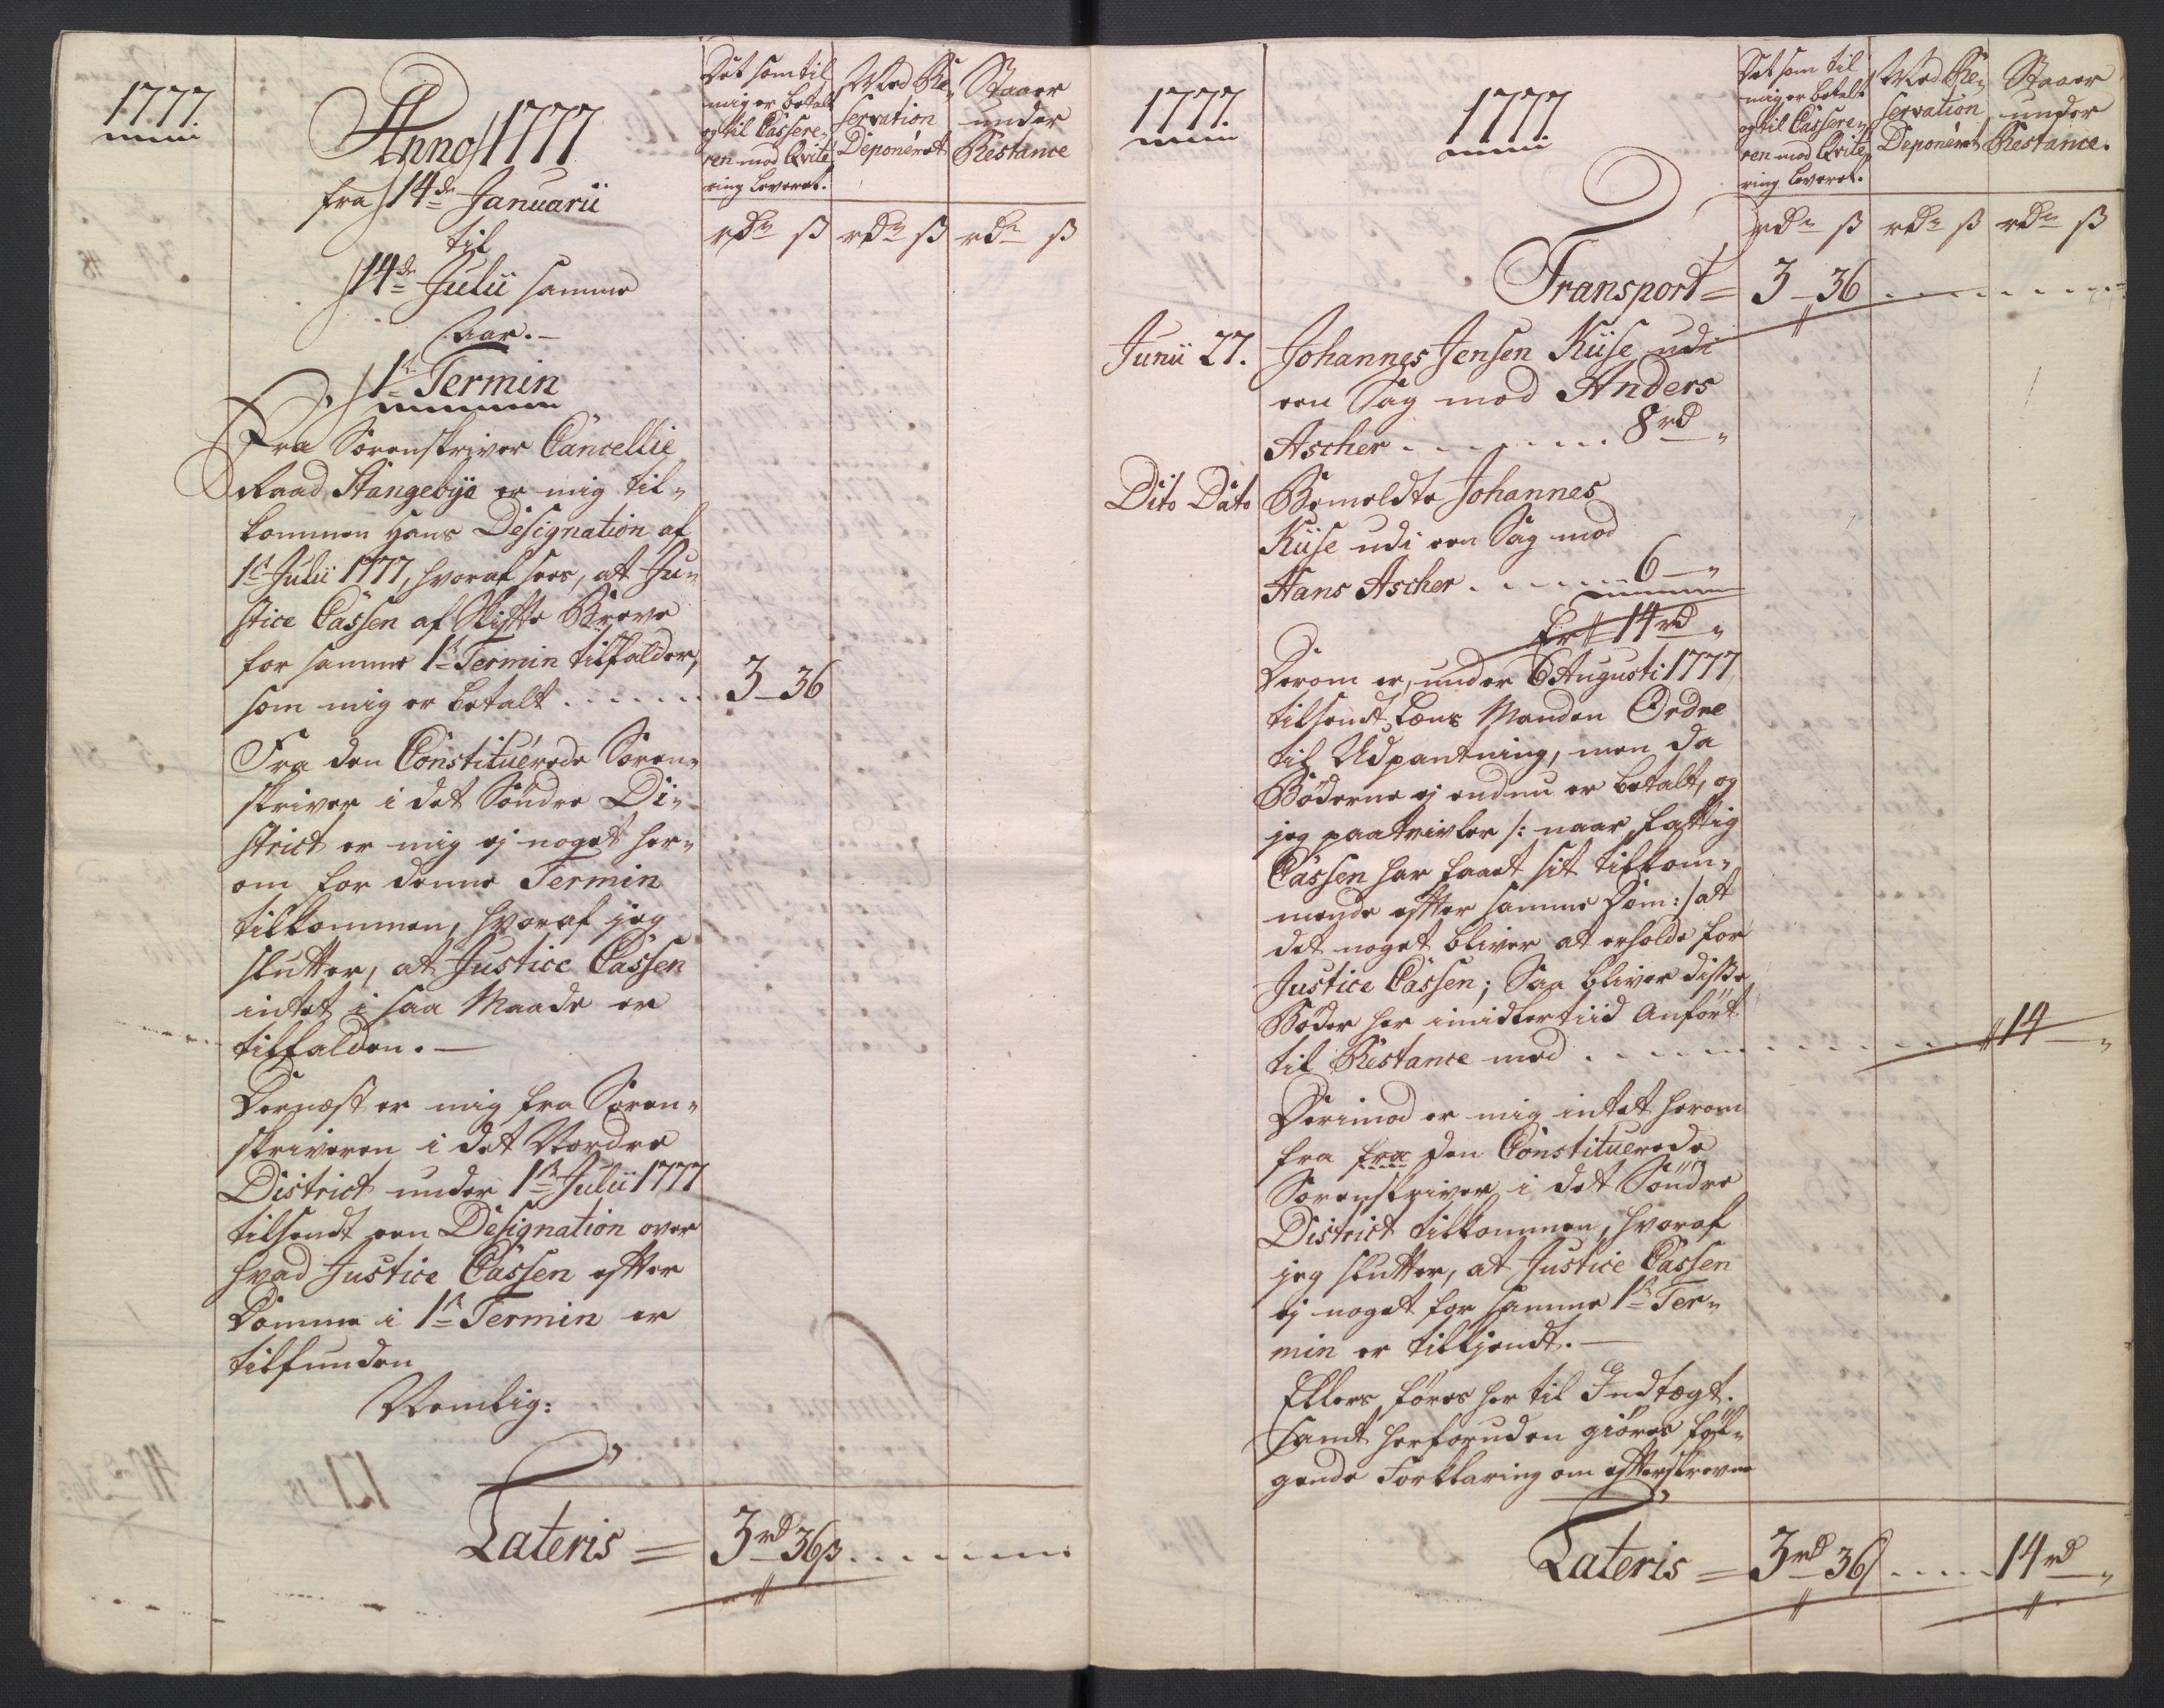 1777.
Anno 1777
fra 14de Januarii
til
14de Julii samme
Aar.
1te Termin
Det som til
mig er betalt
og til Cassere-
ren mod Qvite-
ring leveret.
Med Re-
servation
Deponeret
Staaer
under
Restance
rdr ß rdr ß rdr ß
Fra Sorenskriver Cancellie
Raad Stangebye er mig til-
kommen hans Designation af
1te Julii 1777, hvoraf sees, at Ju-
stice Cassen af Skifte Breve
for samme 1te Termin tilfalder,
som mig er betalt . . . . . . . 3 - 36
Fra den Constituerede Soren-
skriver i det Söndre Di-
strict er mig ej noget her-
om for denne Termin
tilkommen, hvoraf jeg
slutter, at Justice Cassen
intet i saa Maade er
tilfalden. -
Dernæst er mig fra Soren-
skriveren i det Nordre
District under 1te Julii 1777
tilsendt een Designation over
hvad Justice Cassen efter
Domme i 1te Termin er
tilfunden
Nemlig:
Lateris = 3rd 36ß. . . . . . .
1777.
1777.
Det som til
mig er betalt
og til Cassere-
ren mod Qvite-
ring leveret.
Med Re-
servation
Deponeret
Staaer
under
Restance.
rdr ß rdr ß rdr ß
Transport = 3 - 36 . . . . . . . .
Junii 27. Johannes Jensen Kiise udi
een Sag mod Anders
Ascher . . . . . . . . 8 rd „
Dito Dato Bemeldte Johannes
Kiise udi een Sag mod
Hans Ascher . . . . . . 6 - „
Er 14 rd „
Derom er, under 6 Augusti 1777
tilsendt Lens Manden Ordre
til Udpantning, men da
Böderne ej endnu er betalt, og
jeg paatvivler /: naar fattig
Cassen har faaet sit tilkom-
mende efter samme Dom :/ at
det noget bliver at erholde for
Justice Cassen; Saa bliver disse
Böder her imidlertiid Anfört
til Restance med . . . . . . . . . . . . 14 - „
Derimod er mig intet herom
fra fra den Constituerede
Sorenskriver i det Söndre
District tilkommen, hvoraf
jeg slutter, at Justice Cassen
ej noget for samme 1te Ter-
min er tilkjendt. -
Ellers föres her til Indtægt.
samt herforuden giöres föl-
gende Forklaring om efterskrevne
Lateris = 3rd 36ß . . . . . 14 rd „